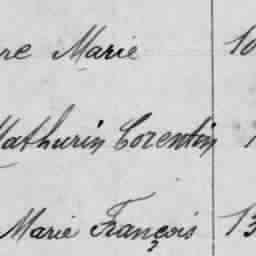 re Marie 10
Mathurin Corentin 1
Marie François 13